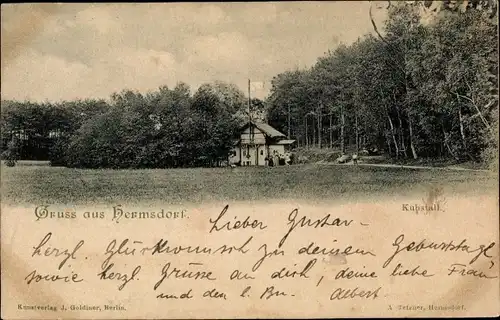 Gruss aus Hermsdorf.
Kuhstall.
Lieber Gustav
herzl. Glückwunsch zu deinem Geburtstage
sowie herzl. Grüsse an dich, deine liebe Frau
und den l. Br. Albert
Kunstverlag J. Goldiner, Berlin.
Hermsdorf.